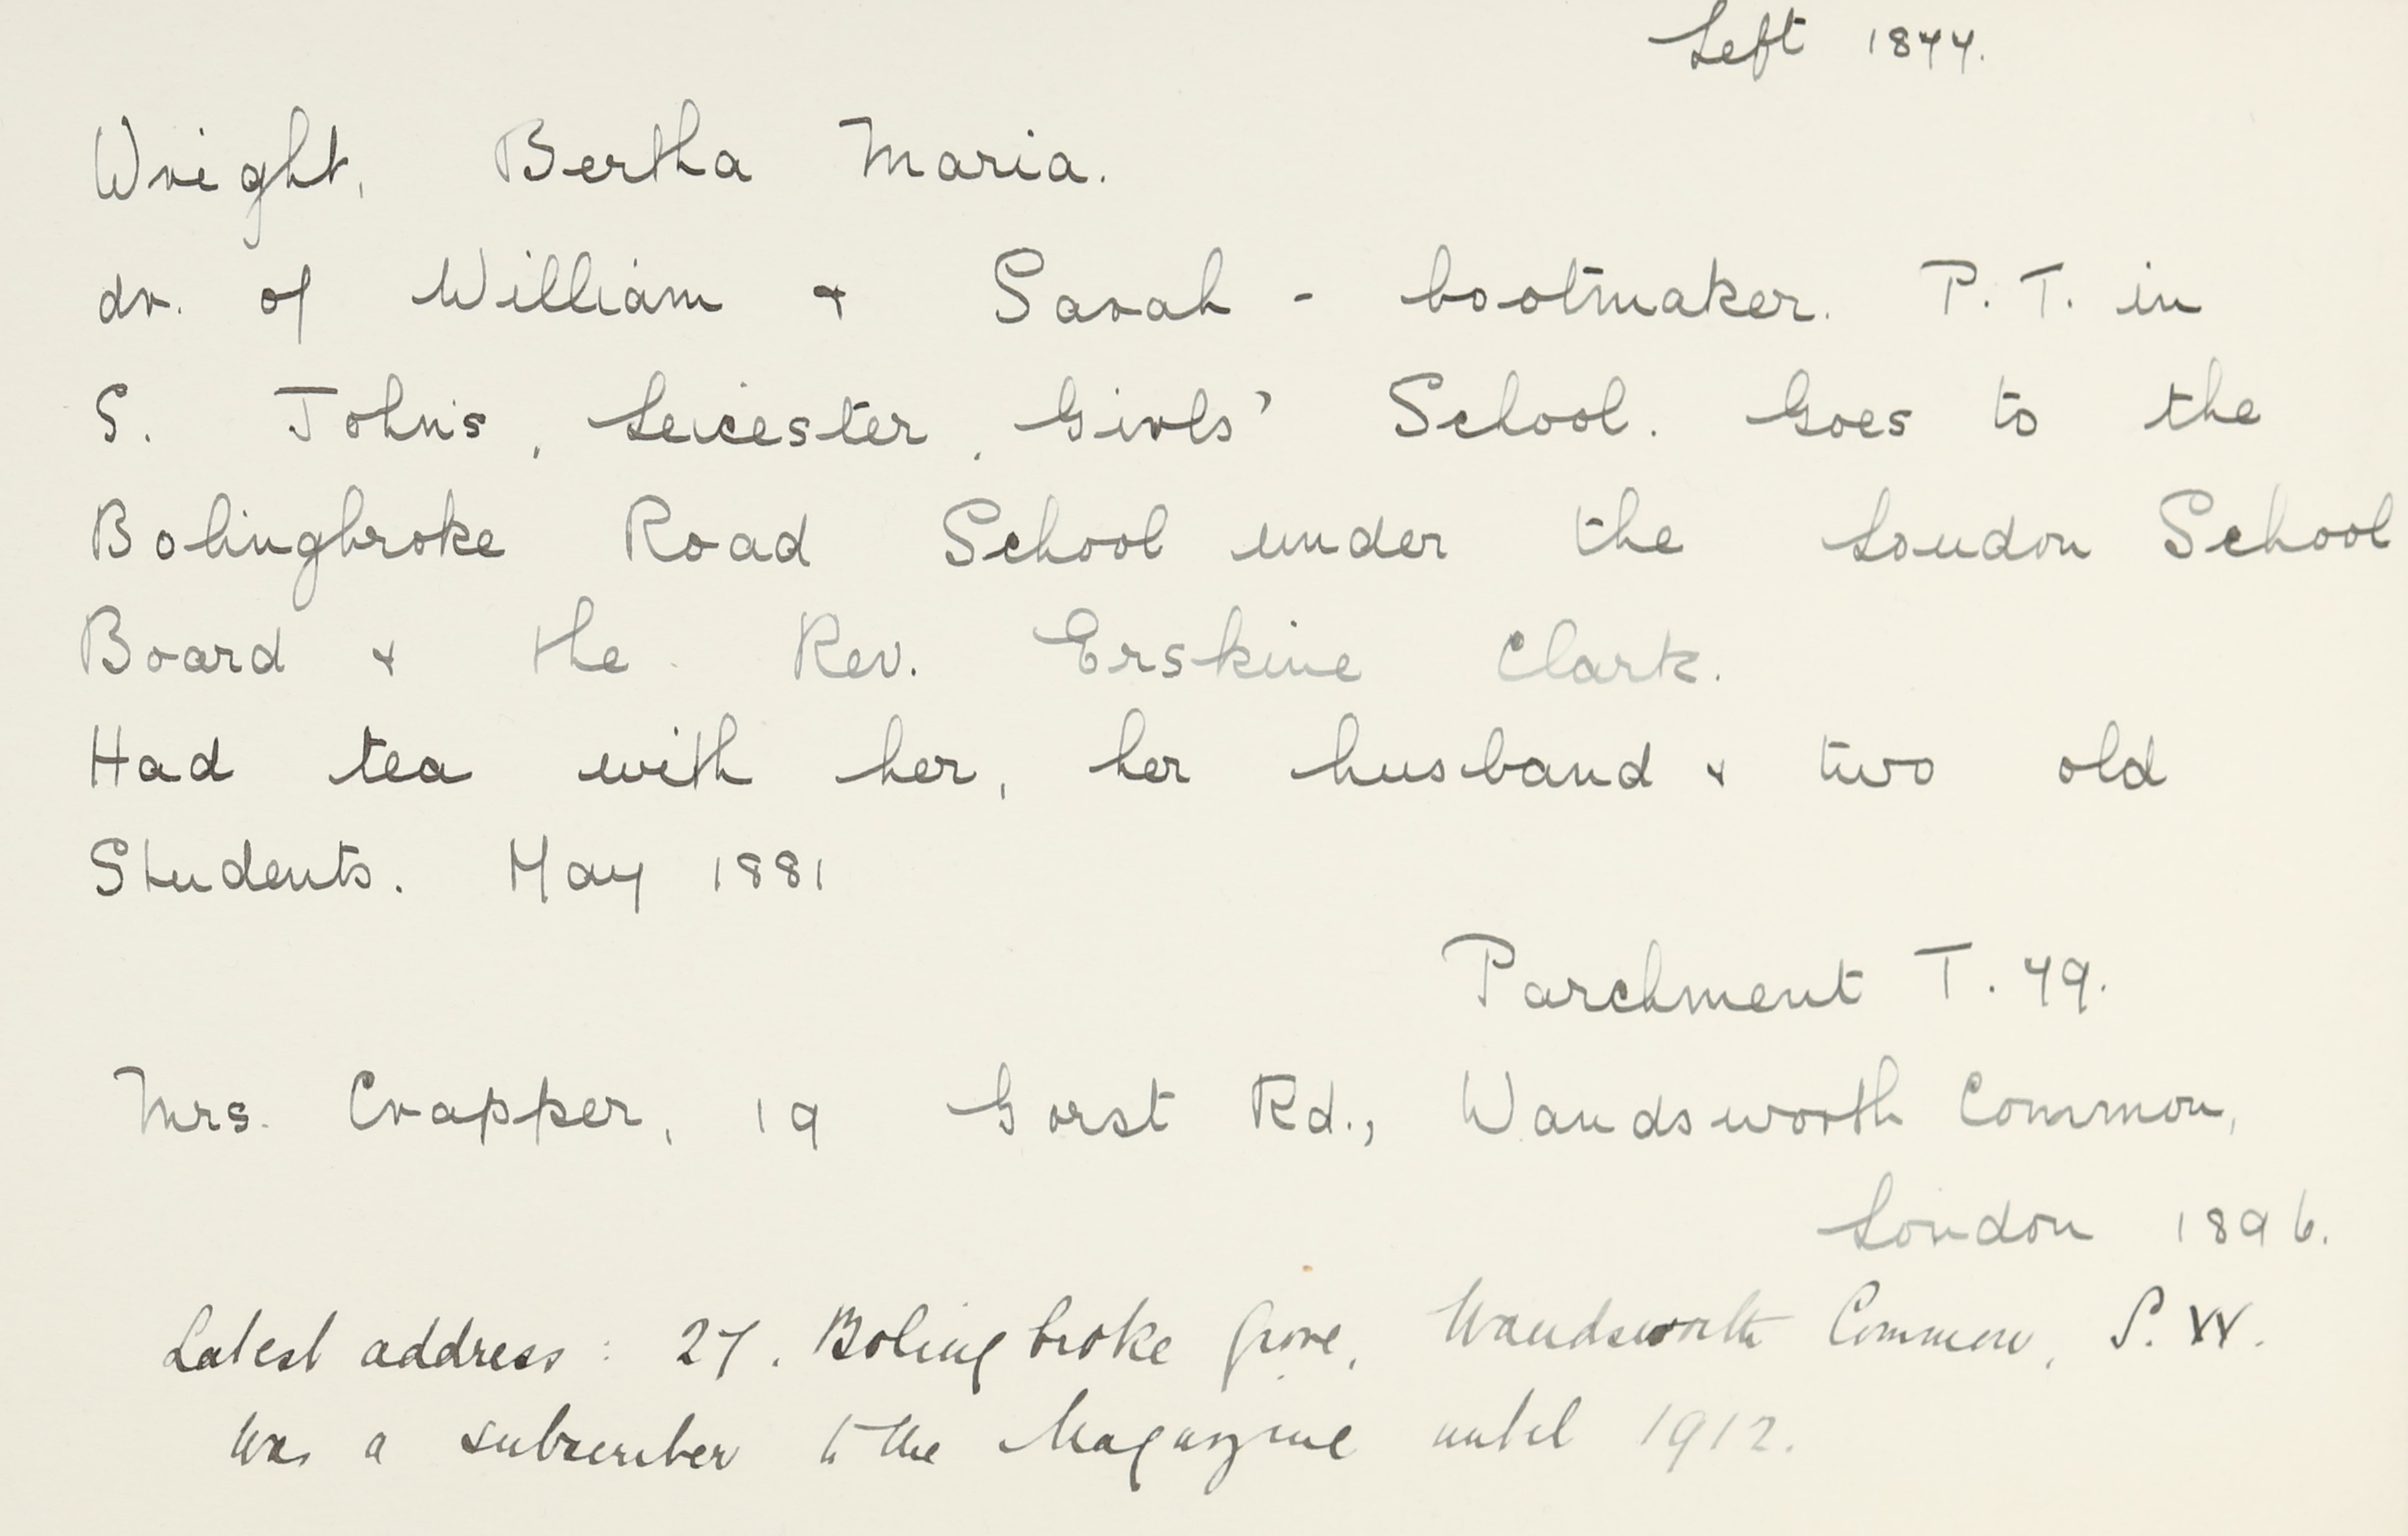 Left 1877.
Wright, Bertha Maria.
dr. of William & Sarah - bootmaker. P. T. in
S. John's, Leicester, Girls' School. Goes to the
Bolingbroke Road School under the London School
Board & the Rev. Erskine Clark.
Had tea with her, her husband & two old
Students. May 1881
Parchment T. 79.
Mrs. Crapper, 19 Gorst Rd., Wandsworth Common,
London 1896.
Latest address: 27. Bolingbroke Grove, Wandsworth Common, S.W.
Was a subscriber to the Magazine until 1912.